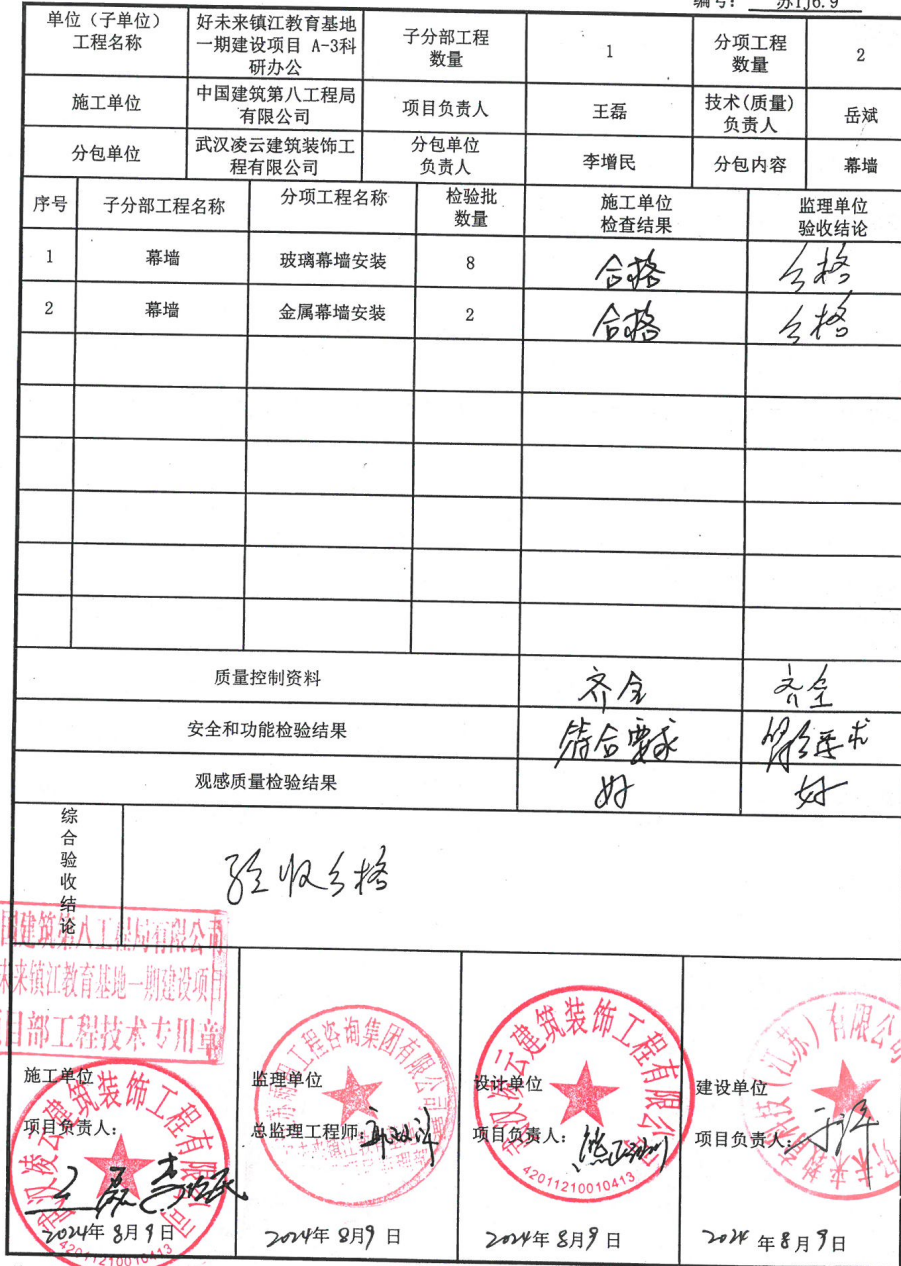 编号： 苏TJ6.9
单位（子单位）
工程名称
好未来镇江教育基地
一期建设项目 A-3科
研办公
子分部工程
数量
1
分项工程
数量
2
施工单位
中国建筑第八工程局
有限公司
项目负责人
王磊
技术(质量)
负责人
岳斌
分包单位
武汉凌云建筑装饰工
程有限公司
分包单位
负责人
李增民
分包内容
幕墙
序号
子分部工程名称
分项工程名称
检验批
数量
施工单位
检查结果
监理单位
验收结论
1
幕墙
玻璃幕墙安装
8
合格
合格
2
幕墙
金属幕墙安装
2
合格
合格
质量控制资料
齐全
齐全
安全和功能检验结果
符合要求
符合要求
观感质量检验结果
好
好
综合验收结论
验收合格
国建筑第八工程局有限公司
未来镇江教育基地一期建设项目
项目部工程技术专用章
施工单位
项目负责人：
王磊 李增民
武汉凌云建筑装饰工程有限公司
42011210010413
2024年 8月 9日
监理单位
总监理工程师：
工程咨询集团有限公司
2024年 8月9 日
设计单位
项目负责人：
武汉凌云建筑装饰工程有限公司
42011210010413
2024年 8月9 日
建设单位
项目负责人：
科技（江苏）有限公司
2024 年 8 月 9 日